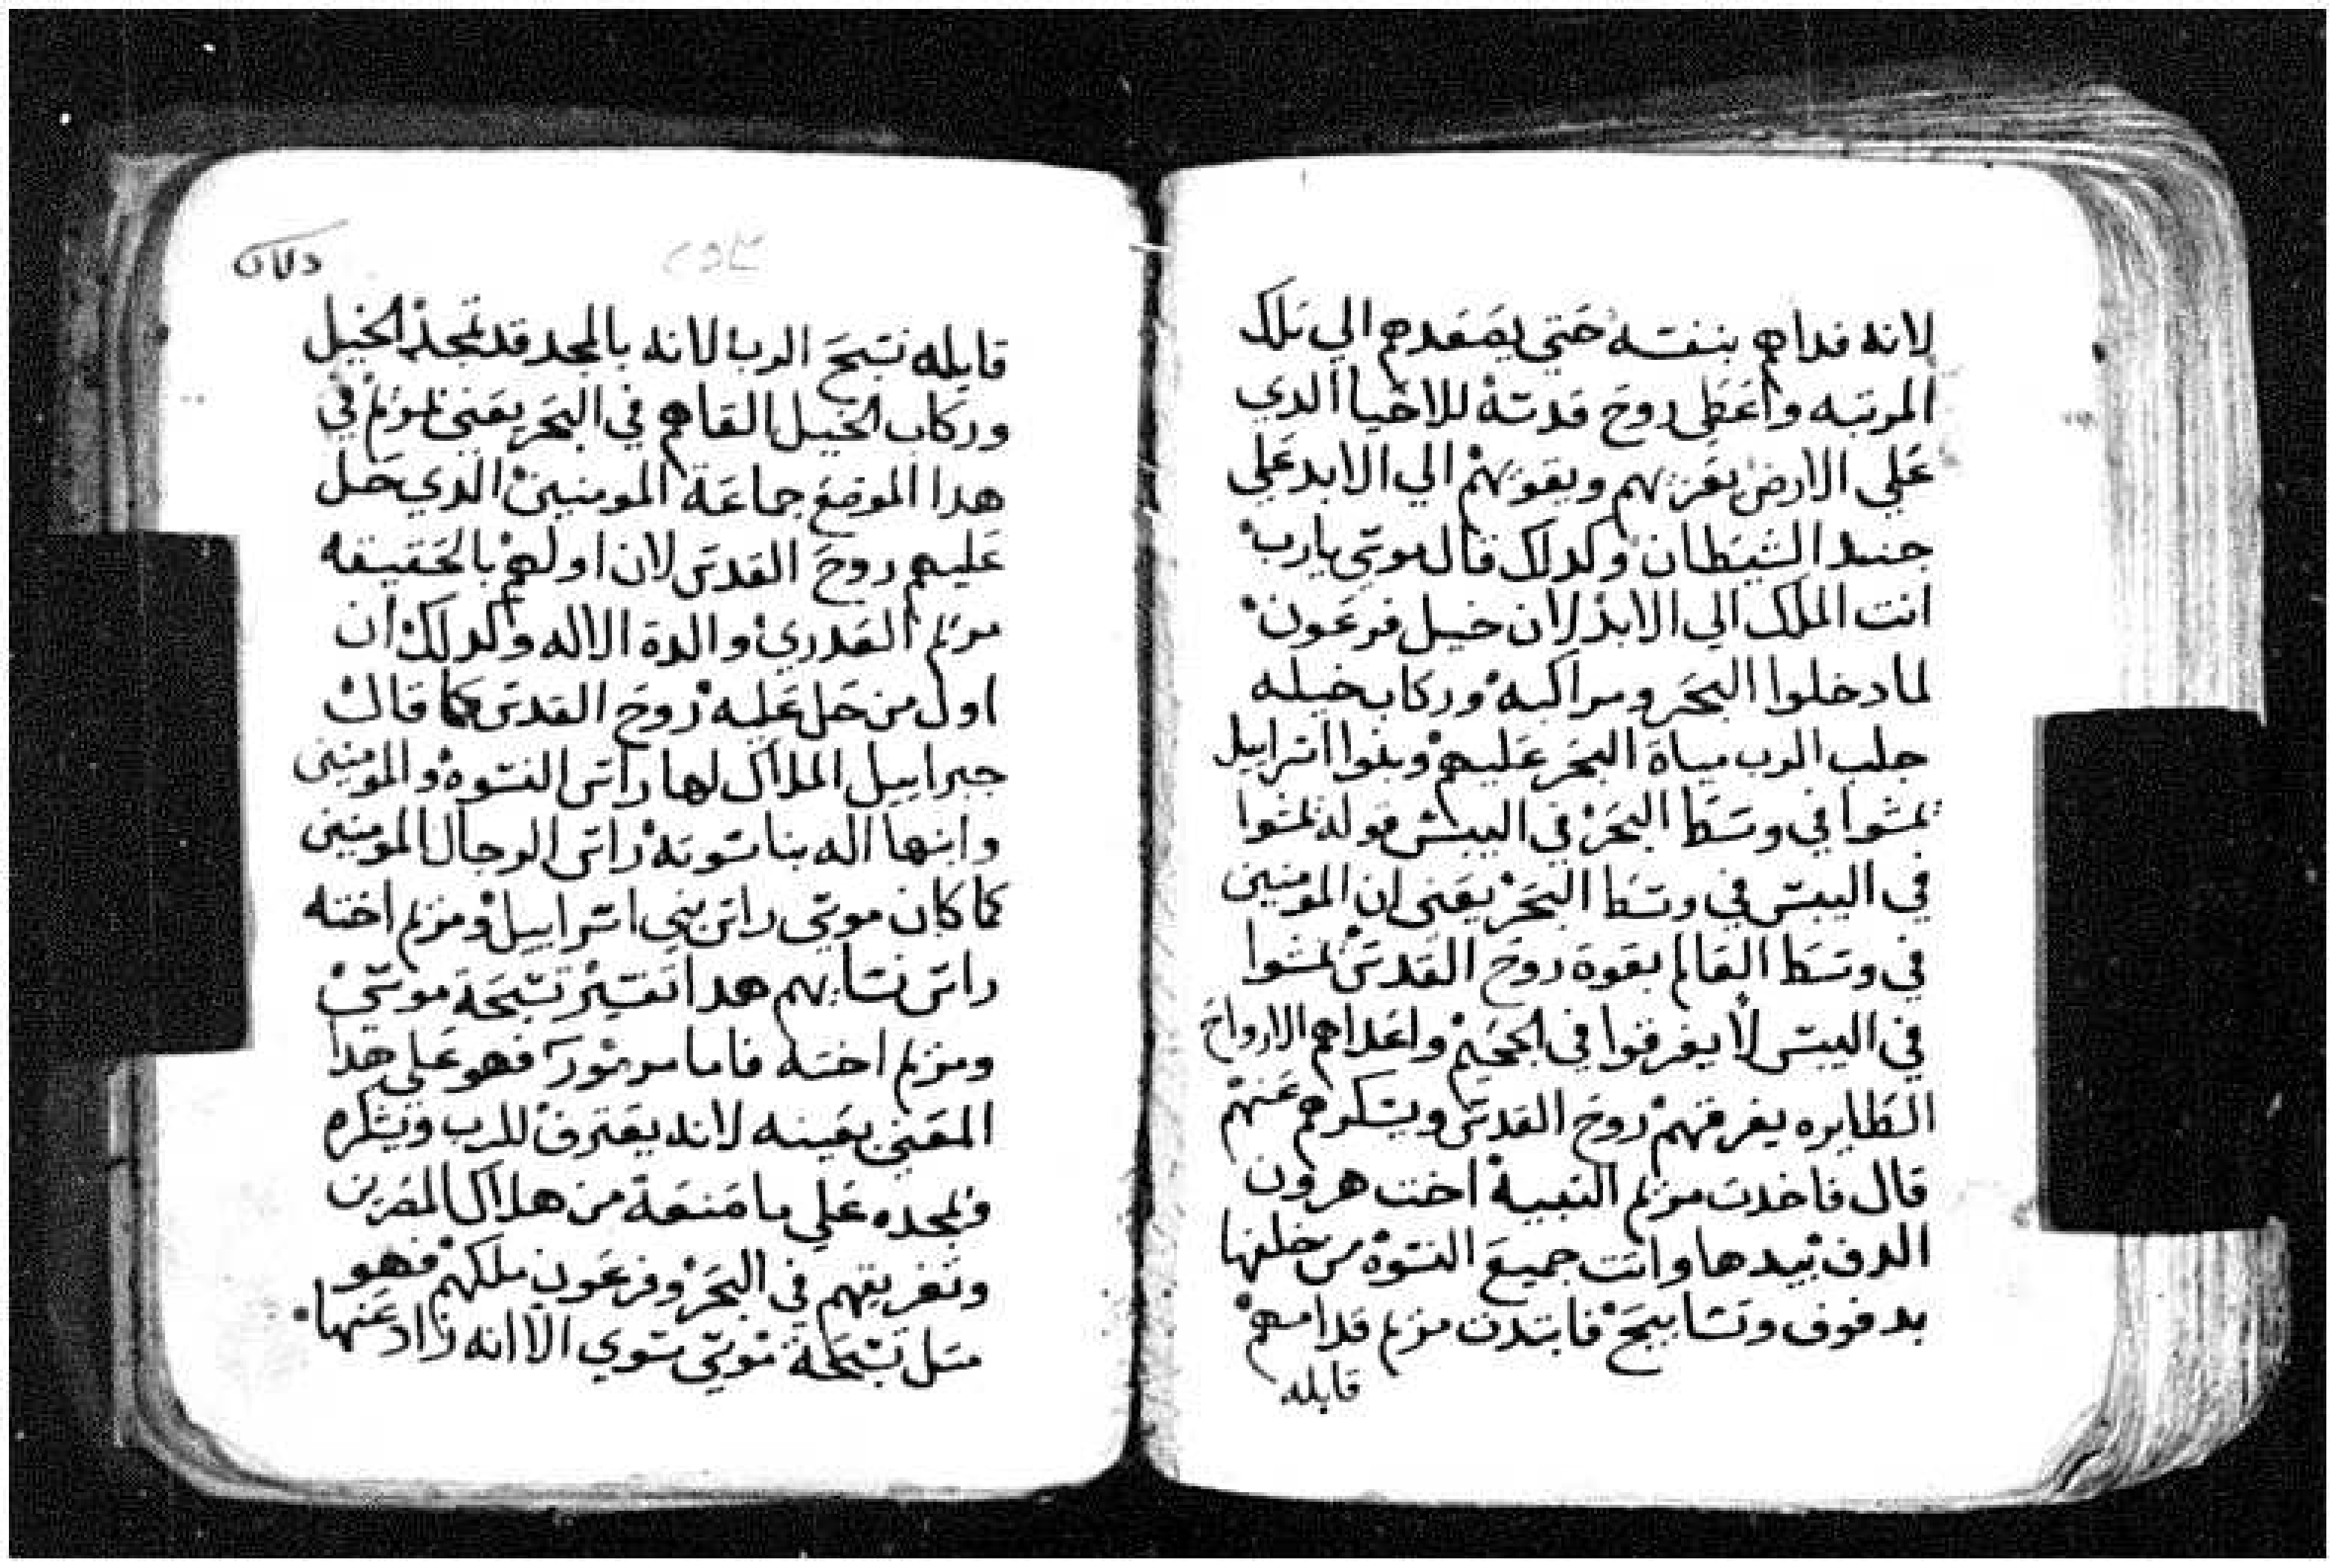 لانه فداهم بنفسه حتى يصعدهم الي تلك
المرتبه واعطى روح قدسة للاحيا الدي
علي الارض يعزيهم ويقويهم الي الابد علي
جنيد الشيطان وكدلك قال موسي يارب
انت الملك الي الابد لان خيل فرعون
لما دخلوا البحر ومراكبه وركاب خيله
جلب الرب مياة البحر عليهم وبنوا اسراييل
مشوا في وسط البحر في اليبس قوله مشوا
في اليبس في وسط البحر يعني ان المومنين
في وسط العالم بقوة روح القدس مشوا
في اليبس لا يغرقوا في الجحيم واعداهم الارواح
الطايره يغرقهم روح القدس ويسكرهم عنهم
قال فاخدت مريم النبية اخت هرون
الدف بيدها واتت جميع النسوة من خلفها
بدفوف وتسابيح فابتدت مريم قدامهم
قايله
قايله نسبح الرب لانه بالمجد قد تمجد الخيل
وركاب الخيل القاهم في البحر يعني بمريم في
هدا الموضع جماعة المومنين الدي حل
عليهم روح القدس لان اولهم بالحقيقه
مريم العدري والدة الاله وكدلك ان
اول من حل عليه روح القدس كما قال
جبراييل الملاك لها راس النسوة والمومنين
وابنها اله بناسوته راس الرجال المومنين
كما كان موسي راس بني اسراييل ومريم اخته
راس نسايهم هدا تفسير تسبحة موسي
ومريم اخته فاما مزمور فهو علي هدا
المعني بعينه لانه يعترف للرب ويشكره
ويمجده علي ما صنعة من هلاك المصريين
وتغريقهم في البحر وفرعون ملكهم فهو
مثل تسبحة موسي سوي الا انه زاد عنها